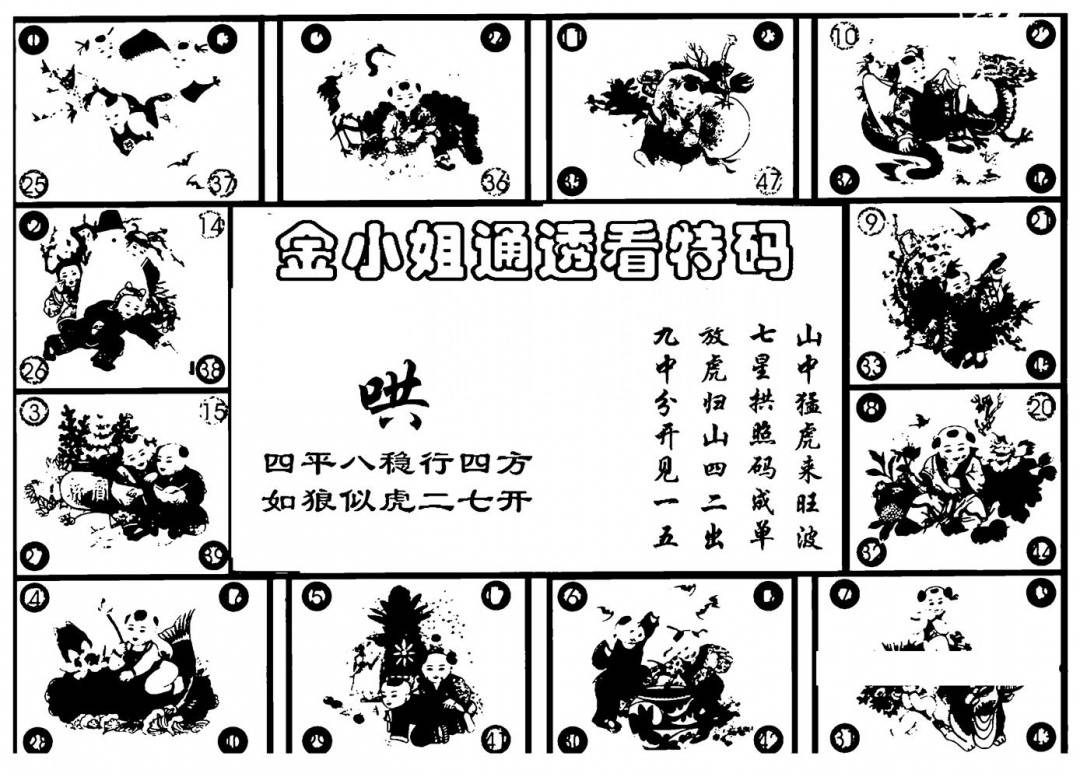 25
37
36
11
35
47
10
22
34
金小姐通透看特码
2
14
26
38
9
21
33
45
哄
四平八稳行四方
如狼似虎二七开
山中猛虎来旺波
七星拱照码成单
放虎归山四二出
九中分开见一五
3
15
27
39
8
20
32
44
4
28
5
29
41
6
30
42
7
31